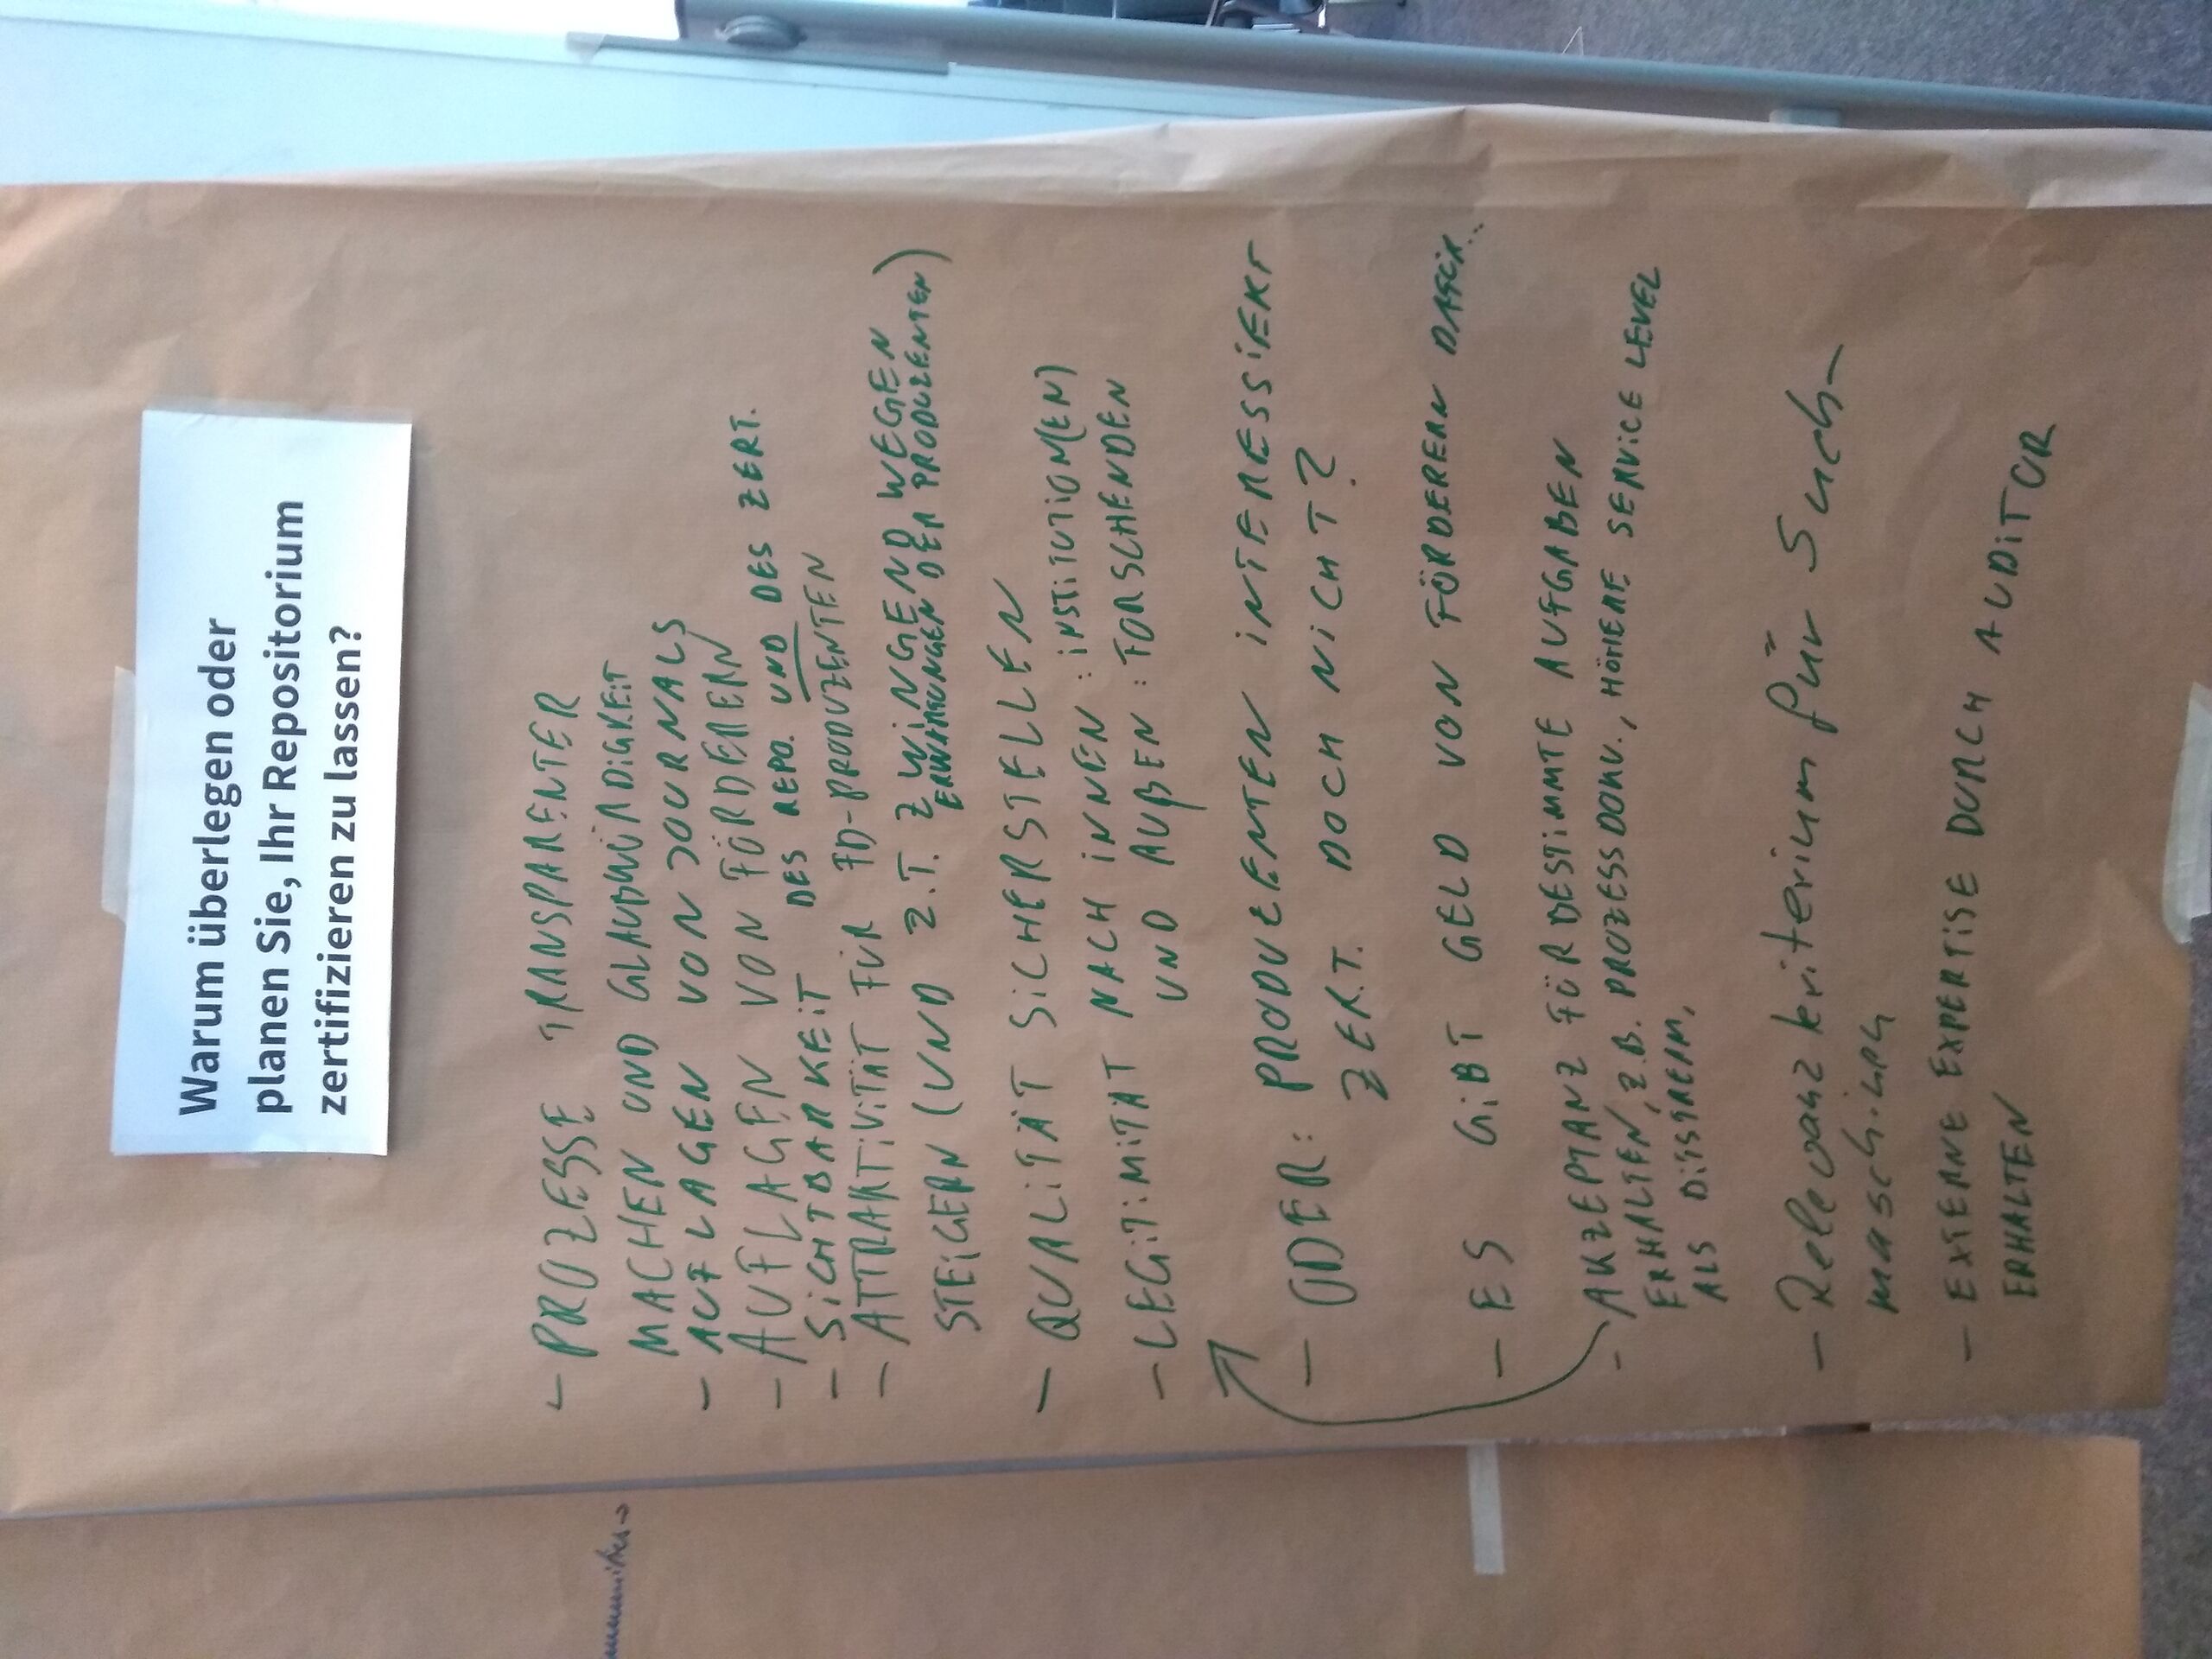 Warum überlegen oder
planen Sie, Ihr Repositorium
zertifizieren zu lassen?
- PROZESSE TRANSPARENTER
MACHEN UND GLAUBWÜRDIGKEIT
- AUFLAGEN VON JOURNALS
- AUFLAGEN VON FÖRDERERN
- SICHTBARKEIT DES REPO. UND DES ZERT.
- ATTRAKTIVITÄT FÜR FD-PRODUZENTEN
STEIGERN (UND Z.T. ZWINGEND WEGEN
ERWARTUNGEN DER PRODUZENTEN)
- QUALITÄT SICHERSTELLEN
- LEGITIMITÄT NACH INNEN : INSTITUTION(EN)
UND AUßEN : FORSCHENDEN
- ODER: PRODUZENTEN INTERESSIERT
ZERT. DOCH NICHT?
- ES GIBT GELD VON FÖRDERERN DAFÜR..
- AKZEPTANZ FÜR BESTIMMTE AUFGABEN
ERHALTEN, Z.B. PROZESSDOKU., HÖHERE SERVICE LEVEL
ALS DIFFGREAM,
- Relevanzkriterium für Such-
maschinen
- EXTERNE EXPERTISE DURCH AUDITOR
ERHALTEN